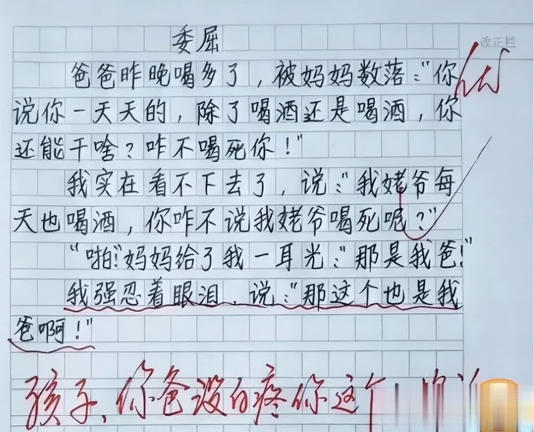 委屈
改正栏
爸爸昨晚喝多了，被妈妈数落："你
说你一天天的，除了喝酒还是喝酒，你
还能干啥？咋不喝死你！"
我实在看不下去了，说："我姥爷每
天也喝酒，你咋不说我姥爷喝死呢？"
"啪！"妈妈给了我一耳光："那是我爸！"
我强忍着眼泪，说："那这个也是我
爸啊！"
孩子，你爸没白疼你这个